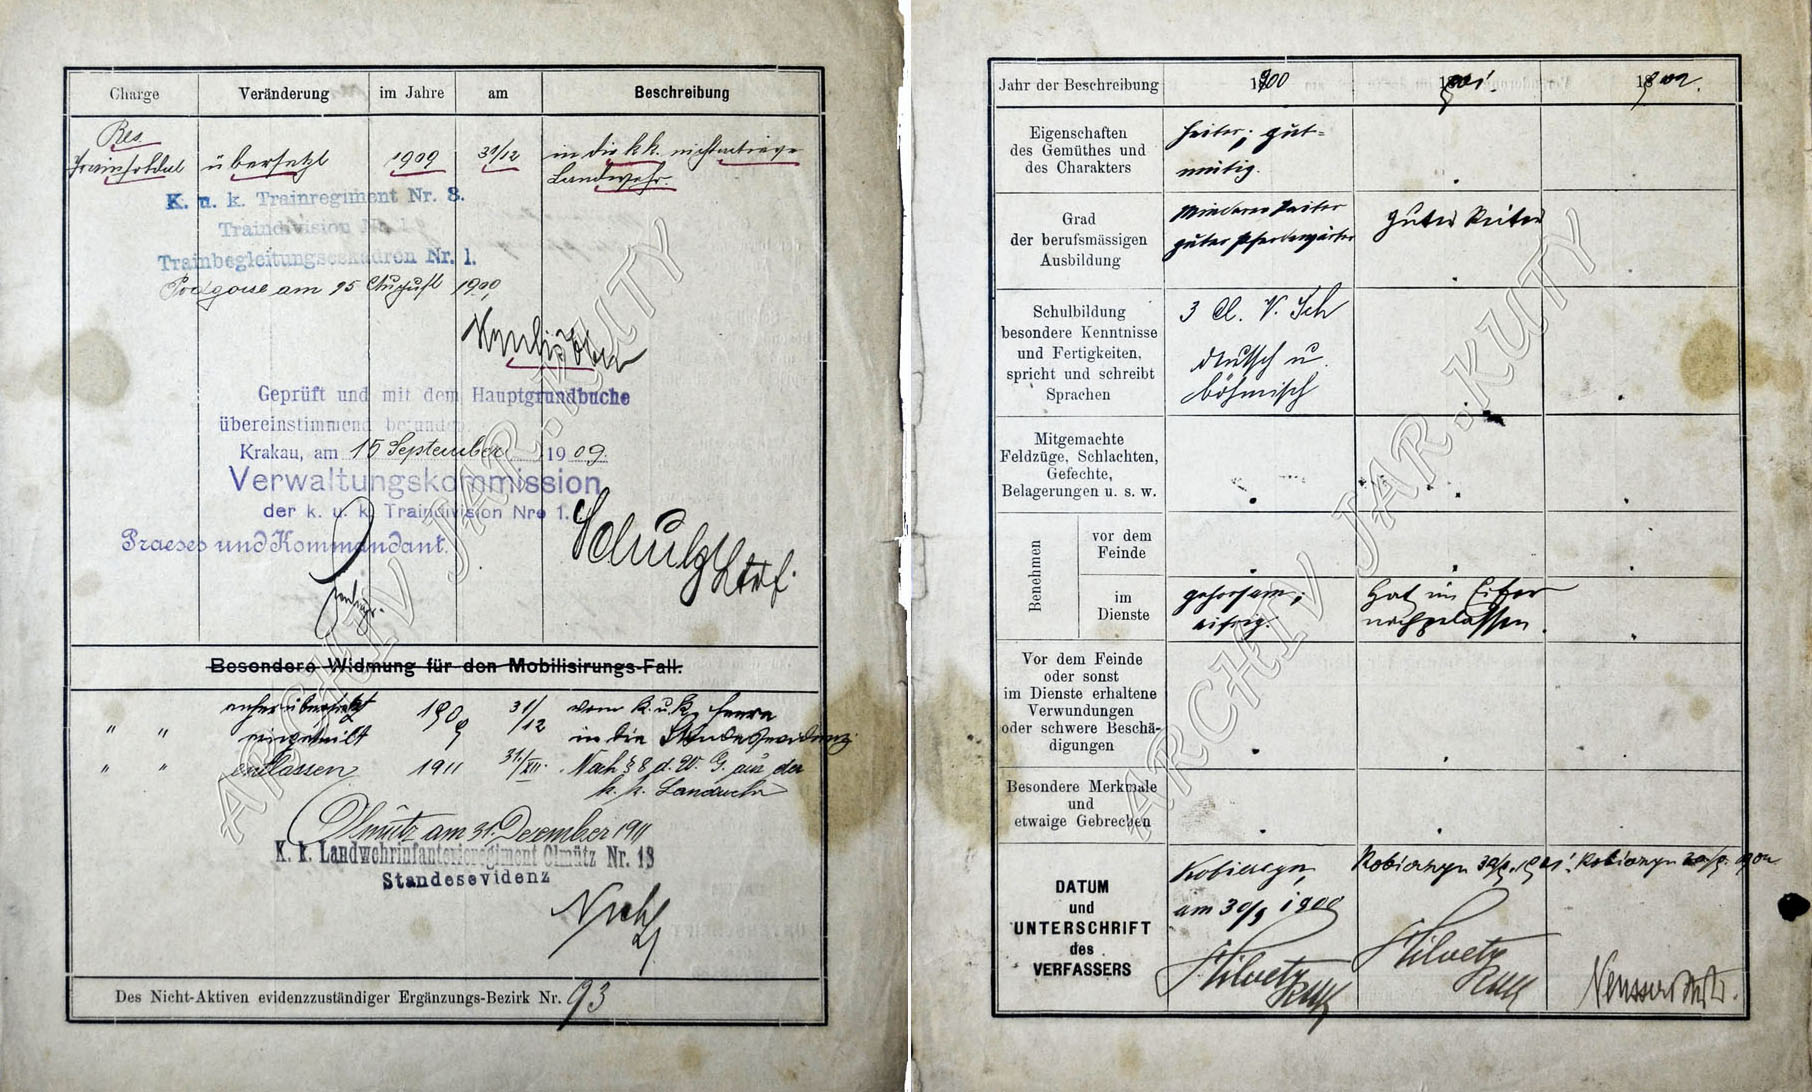 Charge Veränderung im Jahre am Beschreibung
Res.
Trainsoldat übersetzt 1909 31/12 in die k.k. nichtaktive
Landwehr.
K. u. k. Trainregiment Nr. 3.
Traindivision Nr. 1
Trainbegleitungseskadron Nr. 1.
am 25 August 1909
Geprüft und mit dem Hauptgrundbuche
übereinstimmend befunden.
Krakau, am 15 September 1909.
Verwaltungskommission
der k. u. k. Traindivision Nro 1.
Praeses und Kommandant.
Schulz
Besondere Widmung für den Mobilisirungs-Fall.
anher übersetzt 1909 31/12 vom k. u. k. Heere
" " eingeteilt in die Standesevidenz
" " entlassen 1911 31./XII. Nach § 8 d. W. G. aus der
k. k. Landwehr
Olmütz am 31. Dezember 1911
K. k. Landwehrinfanterieregiment Olmütz Nr. 13
Standesevidenz
Des Nicht-Aktiven evidenzzuständiger Ergänzungs-Bezirk Nr. 93
Jahr der Beschreibung 1900 1901. 1902.
Eigenschaften
des Gemüthes und
des Charakters
heiter; gut-
mütig.
Grad
der berufsmässigen
Ausbildung
Minderer Reiter
guter Pferdewärter
guter Reiter
Schulbildung
besondere Kenntnisse
und Fertigkeiten,
spricht und schreibt
Sprachen
3 Cl. V. Sch
deutsch u.
böhmisch
Mitgemachte
Feldzüge, Schlachten,
Gefechte,
Belagerungen u. s. w.
Benehmen
vor dem
Feinde
im
Dienste
gehorsam;
eifrig.
Hat im Eifer
nachgelassen.
Vor dem Feinde
oder sonst
im Dienste erhaltene
Verwundungen
oder schwere Beschä-
digungen
Besondere Merkmale
und
etwaige Gebrechen
DATUM
und
UNTERSCHRIFT
des
VERFASSERS
am 30/9 1900
ARCHIV JAR. KUTY
ARCHIV JAR. KUTY